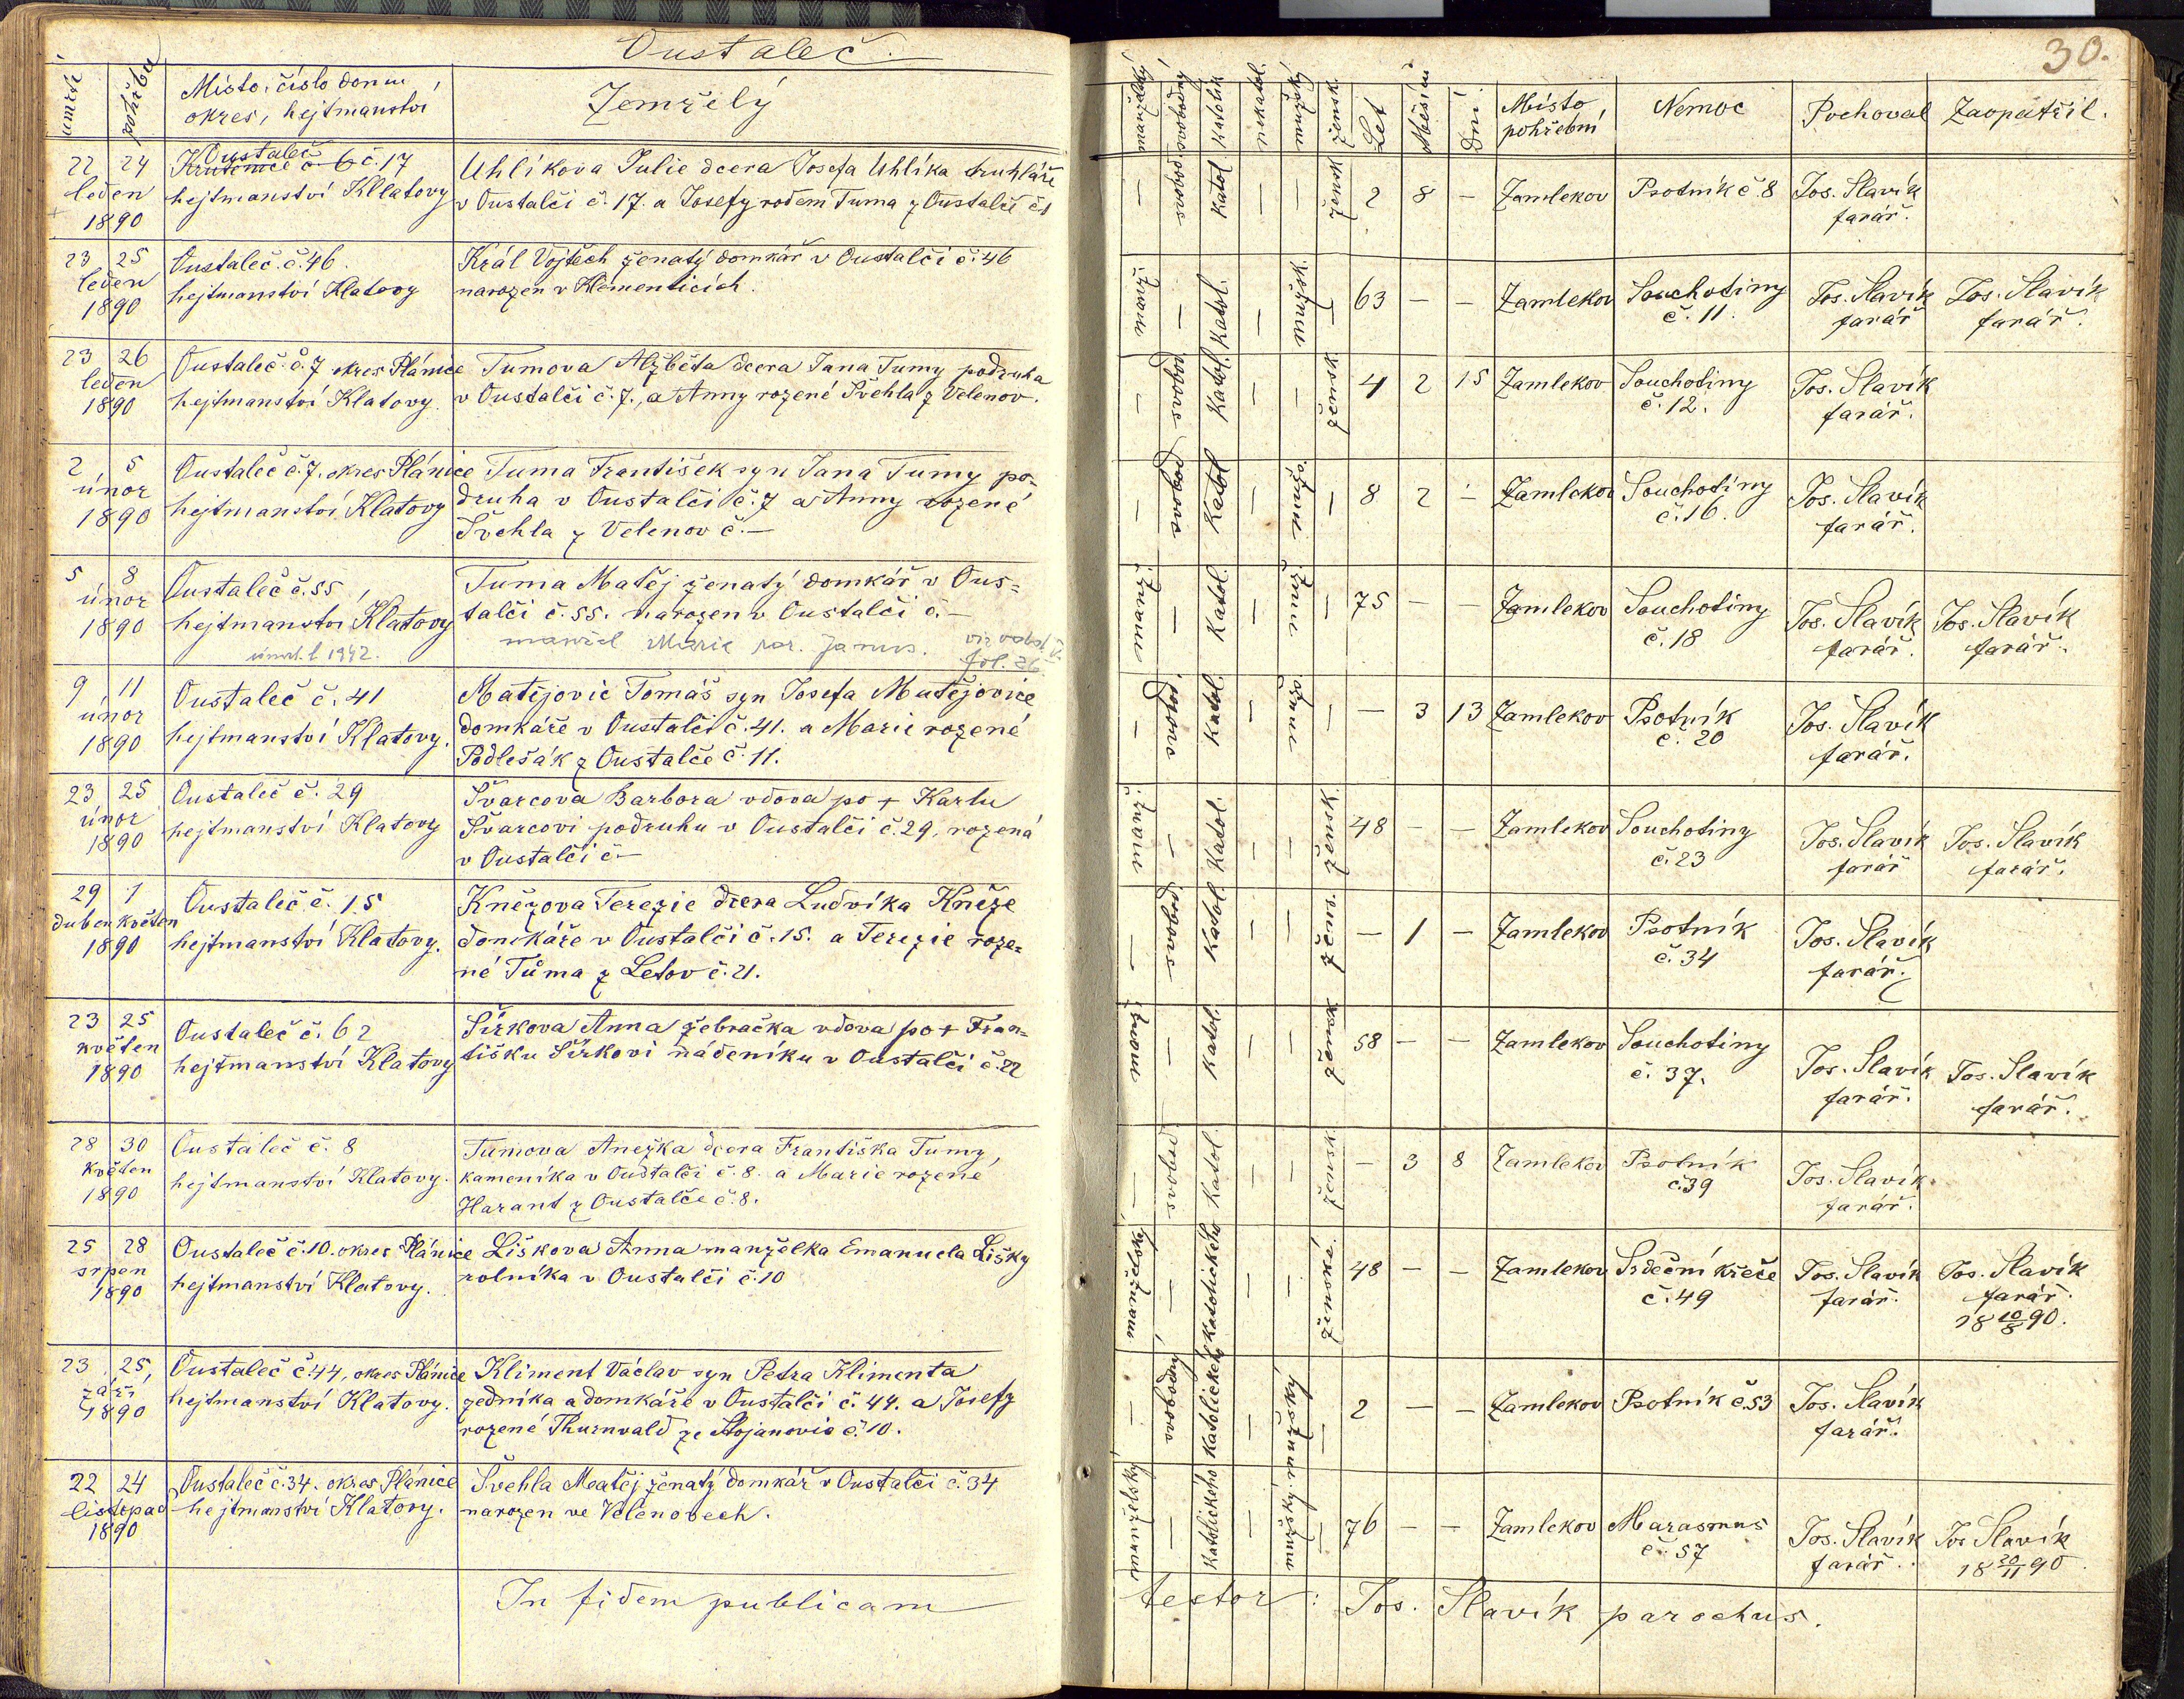 Oustaleč.
30.
úmrtí
pohřbu
Místo, číslo domu,
okres, hejtmanství
Zemřelý
manželský
svobodný
katolík
nekatol.
mužský
žensk.
Let
Měsíců
Dní
Místo
pohřební
Nemoc
Pochoval
Zaopatřil.
22 24
leden
1890
Oustaleč
Krutěnice č 6 č. 17
hejtmanství Kllatovy
Uhlíkova Julie dcera Josefa Uhlíka truhláře
v Oustalči č. 17. a Josefy rodem Tuma z Oustalče č1
— svobod. Katol — — žensk 2 8 — Zamlekov Psotník č. 8 Jos. Slavík
farář.
23 25
leden
1890
Oustaleč. č. 46.
hejtmanství Klatovy
Král Vojtěch ženatý domkář v Oustalči č. 46
narozen v Klementicích.
manž. — Katol. — mužsk. — 63 — — Zamlekov Souchotiny
č. 11.
Jos. Slavík
farář
Jos. Slavík
farář.
23 26
leden
1890
Oustaleč. č. 7 okres Plánice
hejtmanství Klatovy.
Tumova Alžběta dcera Jana Tumy podruha
v Oustalči č. 7., a Anny rozené Švehla z Velenov.
— svobod. Katol. — — žensk 4 2 15 Zamlekov Souchotiny
č. 12.
Jos. Slavík
farář.
2 5
únor
1890
Oustaleč č. 7. okres Plánice
hejtmanství Klatovy
Tuma František syn Jana Tumy po-
druha v Oustalči č. 7 a Anny rozené
Švehla z Velenov č. —
— svobod. Katol — mužs. — 8 2 — Zamlekov Souchotiny
č. 16.
Jos. Slavík
farář.
5 8
únor
1890
Oustaleč č. 55,
hejtmanství Klatovy
Tuma Matěj ženatý domkář v Ous=
talči č. 55. narozen v Oustalči č. —
manžel Marie roz. Janus.
fol. 26
manž. — Katol. — muž. — 75 — — Zamlekov Souchotiny
č. 18
Jos. Slavík
farář.
Jos. Slavík
farář.
9 11
únor
1890
Oustaleč č. 41
hejtmanství Klatovy.
Matějovic Tomáš syn Josefa Matějovice
domkáře v Oustalči č. 41. a Marie rozené
Podlešák z Oustalče č. 11.
— svobod. Katol. — mužs — — 3 13 Zamlekov Psotník
č. 20
Jos. Slavík
farář.
23 25
únor
1890
Oustaleč č. 29
hejtmanství Klatovy
Švarcova Barbora vdova po + Karlu
Švarcovi podruhu v Oustalči č. 29, rozená
v Oustalči č —
manž. — Katol. — — žensk. 48 — — Zamlekov Souchotiny
č. 23
Jos. Slavík
farář
Jos. Slavík
farář.
29 1
duben květen
1890
Oustaleč č. 15
hejtmanství Klatovy.
Knězova Terezie dcera Ludvíka Kněze
domkáře v Oustalči č. 15. a Terezie roze-
né Tůma z Letov č. 21.
— svobod. Katol. — — žens. — 1 — Zamlekov Psotník
č. 34
Jos. Slavík
farář.
23 25
květen
1890
Oustaleč č. 62
hejtmanství Klatovy
Šírkova Anna žebračka vdova po + Fran-
tišku Šírkovi nádeníku v Oustalči č. 22
manž. — Katol. — — žensk 58 — — Zamlekov Souchotiny
č. 37.
Jos. Slavík
farář.
Jos. Slavík
farář.
28 30
květen
1890
Oustaleč č. 8
hejtmanství Klatovy.
Tumova Anežka dcera Františka Tumy,
kameníka v Oustalči č. 8. a Marie rozené
Harant z Oustalče č. 8.
— svobod. Katol. — — žensk. — 3 8 Zamlekov Psotník
č. 39
Jos. Slavík
farář.
25 28
srpen
1890
Oustaleč č. 10. okres Plánice
hejtmanství Klatovy.
Liškova Anna manželka Emanuela Lišky
rolníka v Oustalči č. 10
manželský — katolického — — ženské. 48 — — Zamlekov Srdeční křeče
č. 49
Jos. Slavík
farář.
Jos. Slavík
farář.
18 10/8 90.
23 25
září
1890
Oustaleč č. 44, okres Plánice
hejtmanství Klatovy.
Kliment Václav syn Petra Klimenta
zedníka a domkáře v Oustalči č. 44. a Josefy
rozené Thurnvald ze Stojanovic č. 10.
— svobodný katolického — mužský — 2 — — Zamlekov Psotník č. 53 Jos. Slavík
farář.
22 24
listopad
1890
Oustaleč č. 34. okres Plánice
hejtmanství Klatovy.
Švehla Matěj ženatý domkář v Oustalči č. 34
narozen ve Velenovech.
manželský — katolického — mužský. — 76 — — Zamlekov Marasmus
č. 57
Jos. Slavík
farář.
Jos Slavík
18 20/11 90
In fidem publicam
testor: Jos. Slavík parochus.